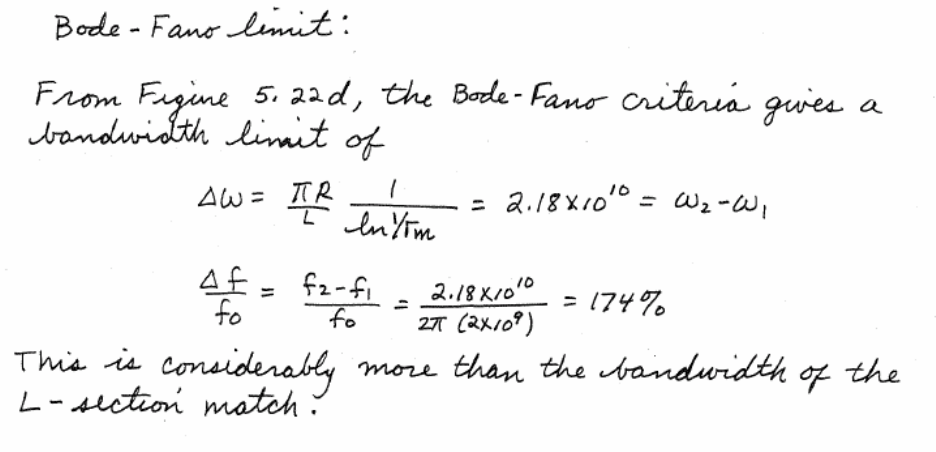 Bode-Fano limit:
From Figure 5.22d, the Bode-Fano criteria gives a
bandwidth limit of
Δω = πR/L 1/ln 1/Γm = 2.18x10^10 = ω2-ω1
Δf/f0 = f2-f1/f0 = 2.18x10^10/2π (2x10^9) = 174%
This is considerably more than the bandwidth of the
L-section match.